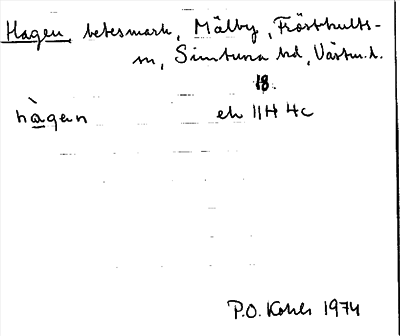 Hagen, betesmark, Mälby, Frösthults-
sn, Simtuna hd, Västm.l.
18.
hàgen ek 11H 4c
P.O. Kohls 1974